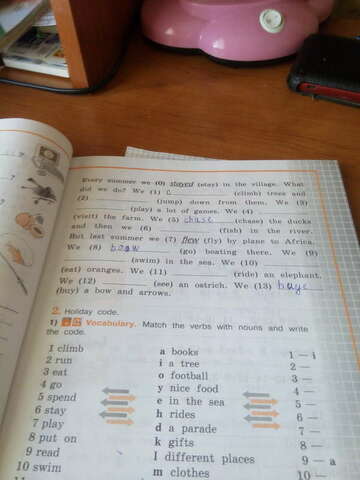 Every summer we (0) stayed (stay) in the village. What
did we do? We (1) c (climb) trees and
(2) (jump) down from them. We (3)
(play) a lot of games. We (4)
(visit) the farm. We (5) chase (chase) the ducks
and then we (6) (fish) in the river.
But last summer we (7) flew (fly) by plane to Africa.
We (8) (go) boating there. We (9)
(swim) in the sea. We (10)
(eat) oranges. We (11) (ride) an elephant.
We (12) (see) an ostrich. We (13) buye
(buy) a bow and arrows.
2. Holiday code.
1) Vocabulary. Match the verbs with nouns and write
the code.
1 climb a books 1 – i
2 run i a tree 2 –
3 eat o football 3 –
4 go y nice food 4 –
5 spend e in the sea 5 –
6 stay h rides 6 –
7 play d a parade 7 –
8 put on k gifts 8 –
9 read l different places 9 – a
10 swim m clothes 10 –